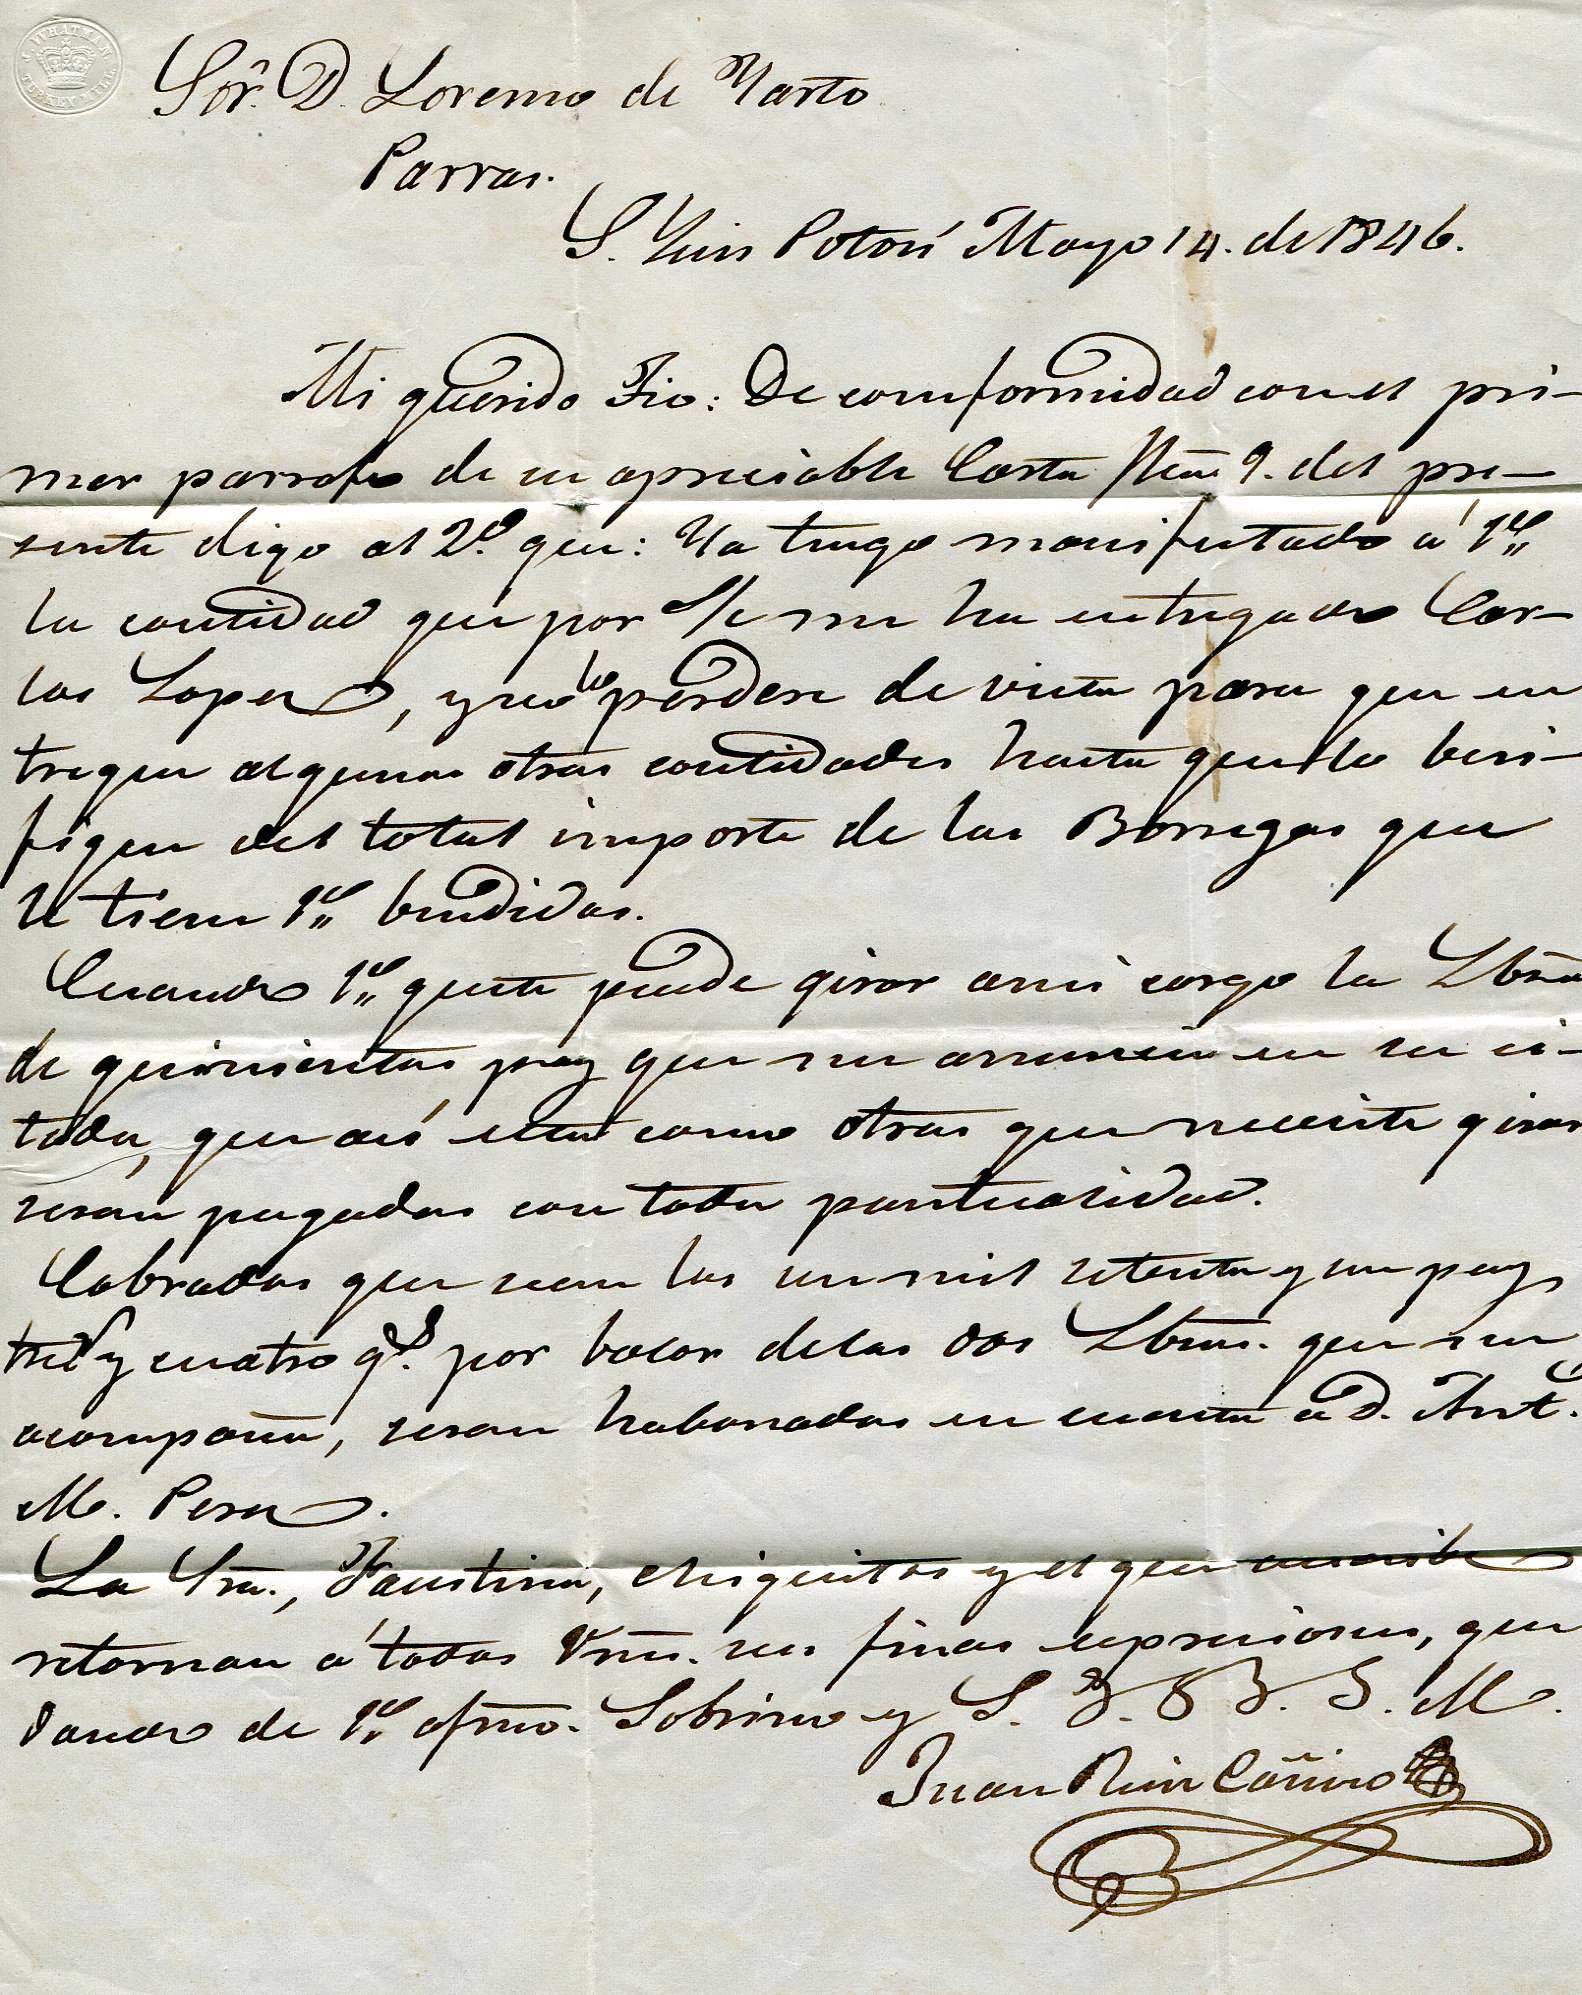 J. WHATMAN
TURKEY MILL
Sor. D. Lorenzo de Yarto
Parras.
S. Luis Potosí Mayo 14. de 1846.
Mi querido Tio: De comformidad con el pri-
mer parrafo de su apreciable Carta fha 9. del pre-
sente digo al 2º que: Ya tengo manifestado á V.
la cantidad que por s/c me ha entregado Car-
los Lopez, y no lo perdere de vista para que en
tregue algunas otras cantidades hasta que lo beri-
fique del total importe de las Borregas que
le tiene V. bendidas.
Cuando V. guste puede girar ami cargo la Lbrza
de quinientos pes que me anuncia en su ci-
tada, que asi esta como otras que necesite girar
seran pagadas con toda puntualidad.
Cobradas que sean los un mil setenta y un pes,
tres rs y cuatro gs. por balor delas dos Lbrzas. que me
acompaña, seran habonadas en cuenta a D. Ant.
M. Perez.
La Sra., Faustina, chiquitos y el que escribe
retornan á todos Vms. sus finas expresiones, que
dando de V. afmo. Sobrino y S. S. Q. B. S. M.
Juan Ruiz Cañizo